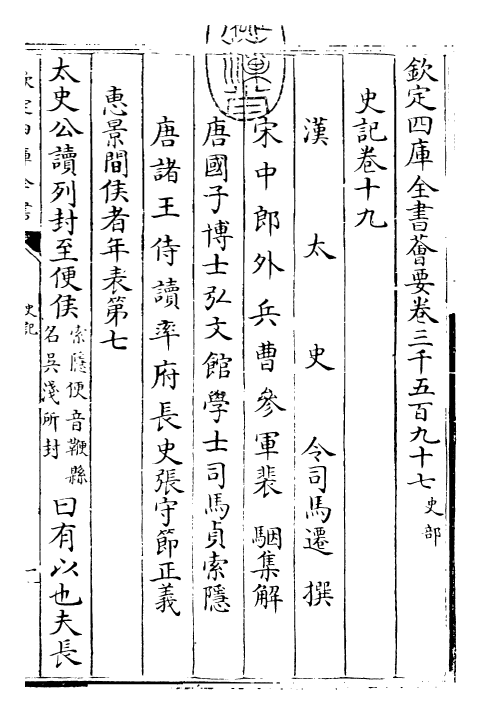 欽定四庫全書薈要卷三千五百九十七 史部
史記卷十九
漢太史令司馬遷撰
宋中郎外兵曹參軍裴駰集解
唐國子博士弘文館學士司馬貞索隱
唐諸王侍讀率府長史張守節正義
惠景間侯者年表第七
太史公讀列封至便侯索隱便音鞭縣名吳淺所封曰有以也夫長
欽定四庫全書
史記
一